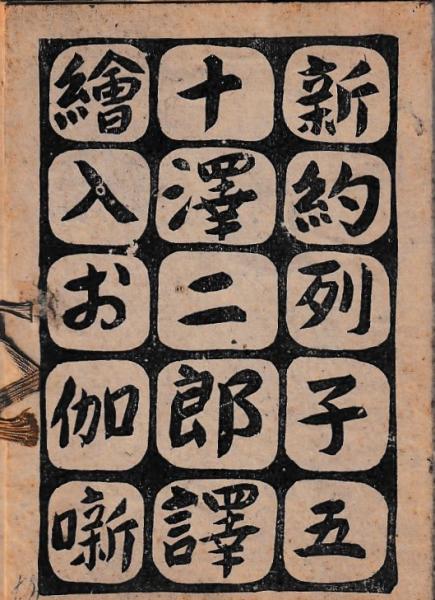 新約列子五
十澤二郎譯
繪入お伽噺